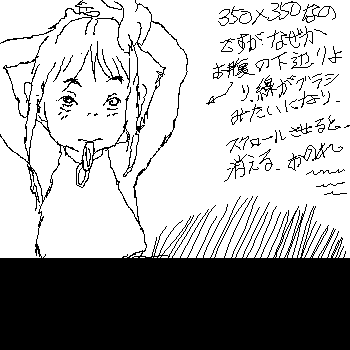 350×350なの
ですが、なぜか
お腹の下辺りよ
り、線がブラシ
みたいになり、
スクロールさせると、
消える。おのれ